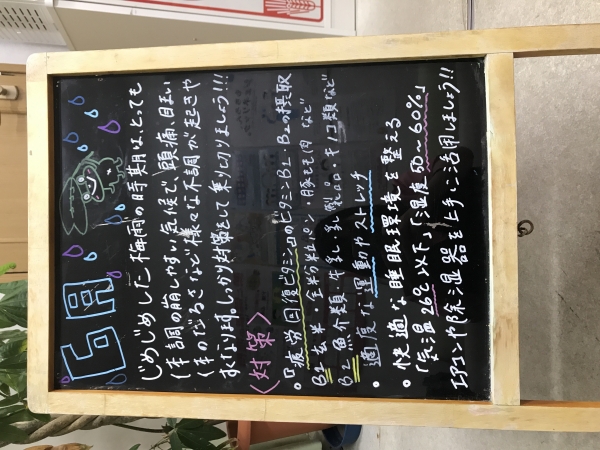 6月
じめじめした梅雨の時期は、とっても
体調の崩しやすい気候で、頭痛・目まい
体のだるさなど様々な不調が起きや
すくなります。しっかり対策をして乗り切りましょう!!!
〈対策〉
・『疲労回復ビタミン』のビタミンB1・B2の摂取
B1 玄米・全粒粉パン・豚もも肉 など
B2 魚介類・牛乳・乳製品・キノコ類など
・適度な運動やストレッチ
・快適な睡眠環境を整える
「気温26℃以下」「湿度50〜60%」
エアコンや除湿器を上手にご活用しましょう!!